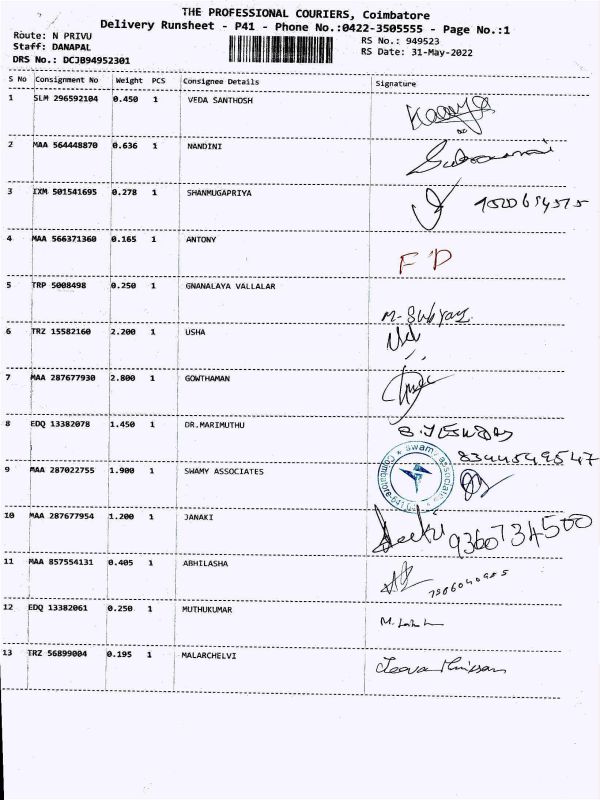 THE PROFESSIONAL COURIERS, Coimbatore
Delivery Runsheet - P41 - Phone No.:0422-3505555 - Page No.:1
Route: N PRIVU
RS No.: 949523
Staff: DANAPAL
RS Date: 31-May-2022
DRS No.: DCJB94952301
S No Consignment No Weight PCS Consignee Details Signature
1 SLM 296592104 0.450 1 VEDA SANTHOSH
2 MAA 564448870 0.636 1 NANDINI
3 IXM 501541695 0.278 1 SHANMUGAPRIYA
4 MAA 566371360 0.165 1 ANTONY FD
5 TRP 5008498 0.250 1 GNANALAYA VALLALAR
6 TRZ 15582160 2.200 1 USHA
7 MAA 287677930 2.800 1 GOWTHAMAN
8 EDQ 13382078 1.450 1 DR.MARIMUTHU
8344549547
9 MAA 287022755 1.900 1 SWAMY ASSOCIATES swamy associates
10 MAA 287677954 1.200 1 JANAKI 9360734500
11 MAA 857554131 0.405 1 ABHILASHA
12 EDQ 13382061 0.250 1 MUTHUKUMAR
13 TRZ 56899004 0.195 1 MALARCHELVI